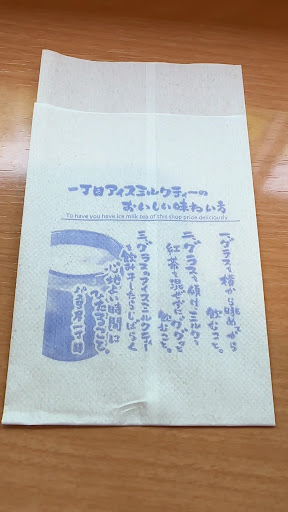 一丁目アイスミルクティーの
おいしい味わい方
To have you have ice milk tea of this shop price deliciously.
一、グラスを横から眺めながら
飲むこと。
二、グラスを傾け、ミルクと
紅茶を混ぜずにググッと
飲むこと。
三、グラスのアイスミルクティー
を飲み干したらしばらく
心地よい時間に
ひたること。